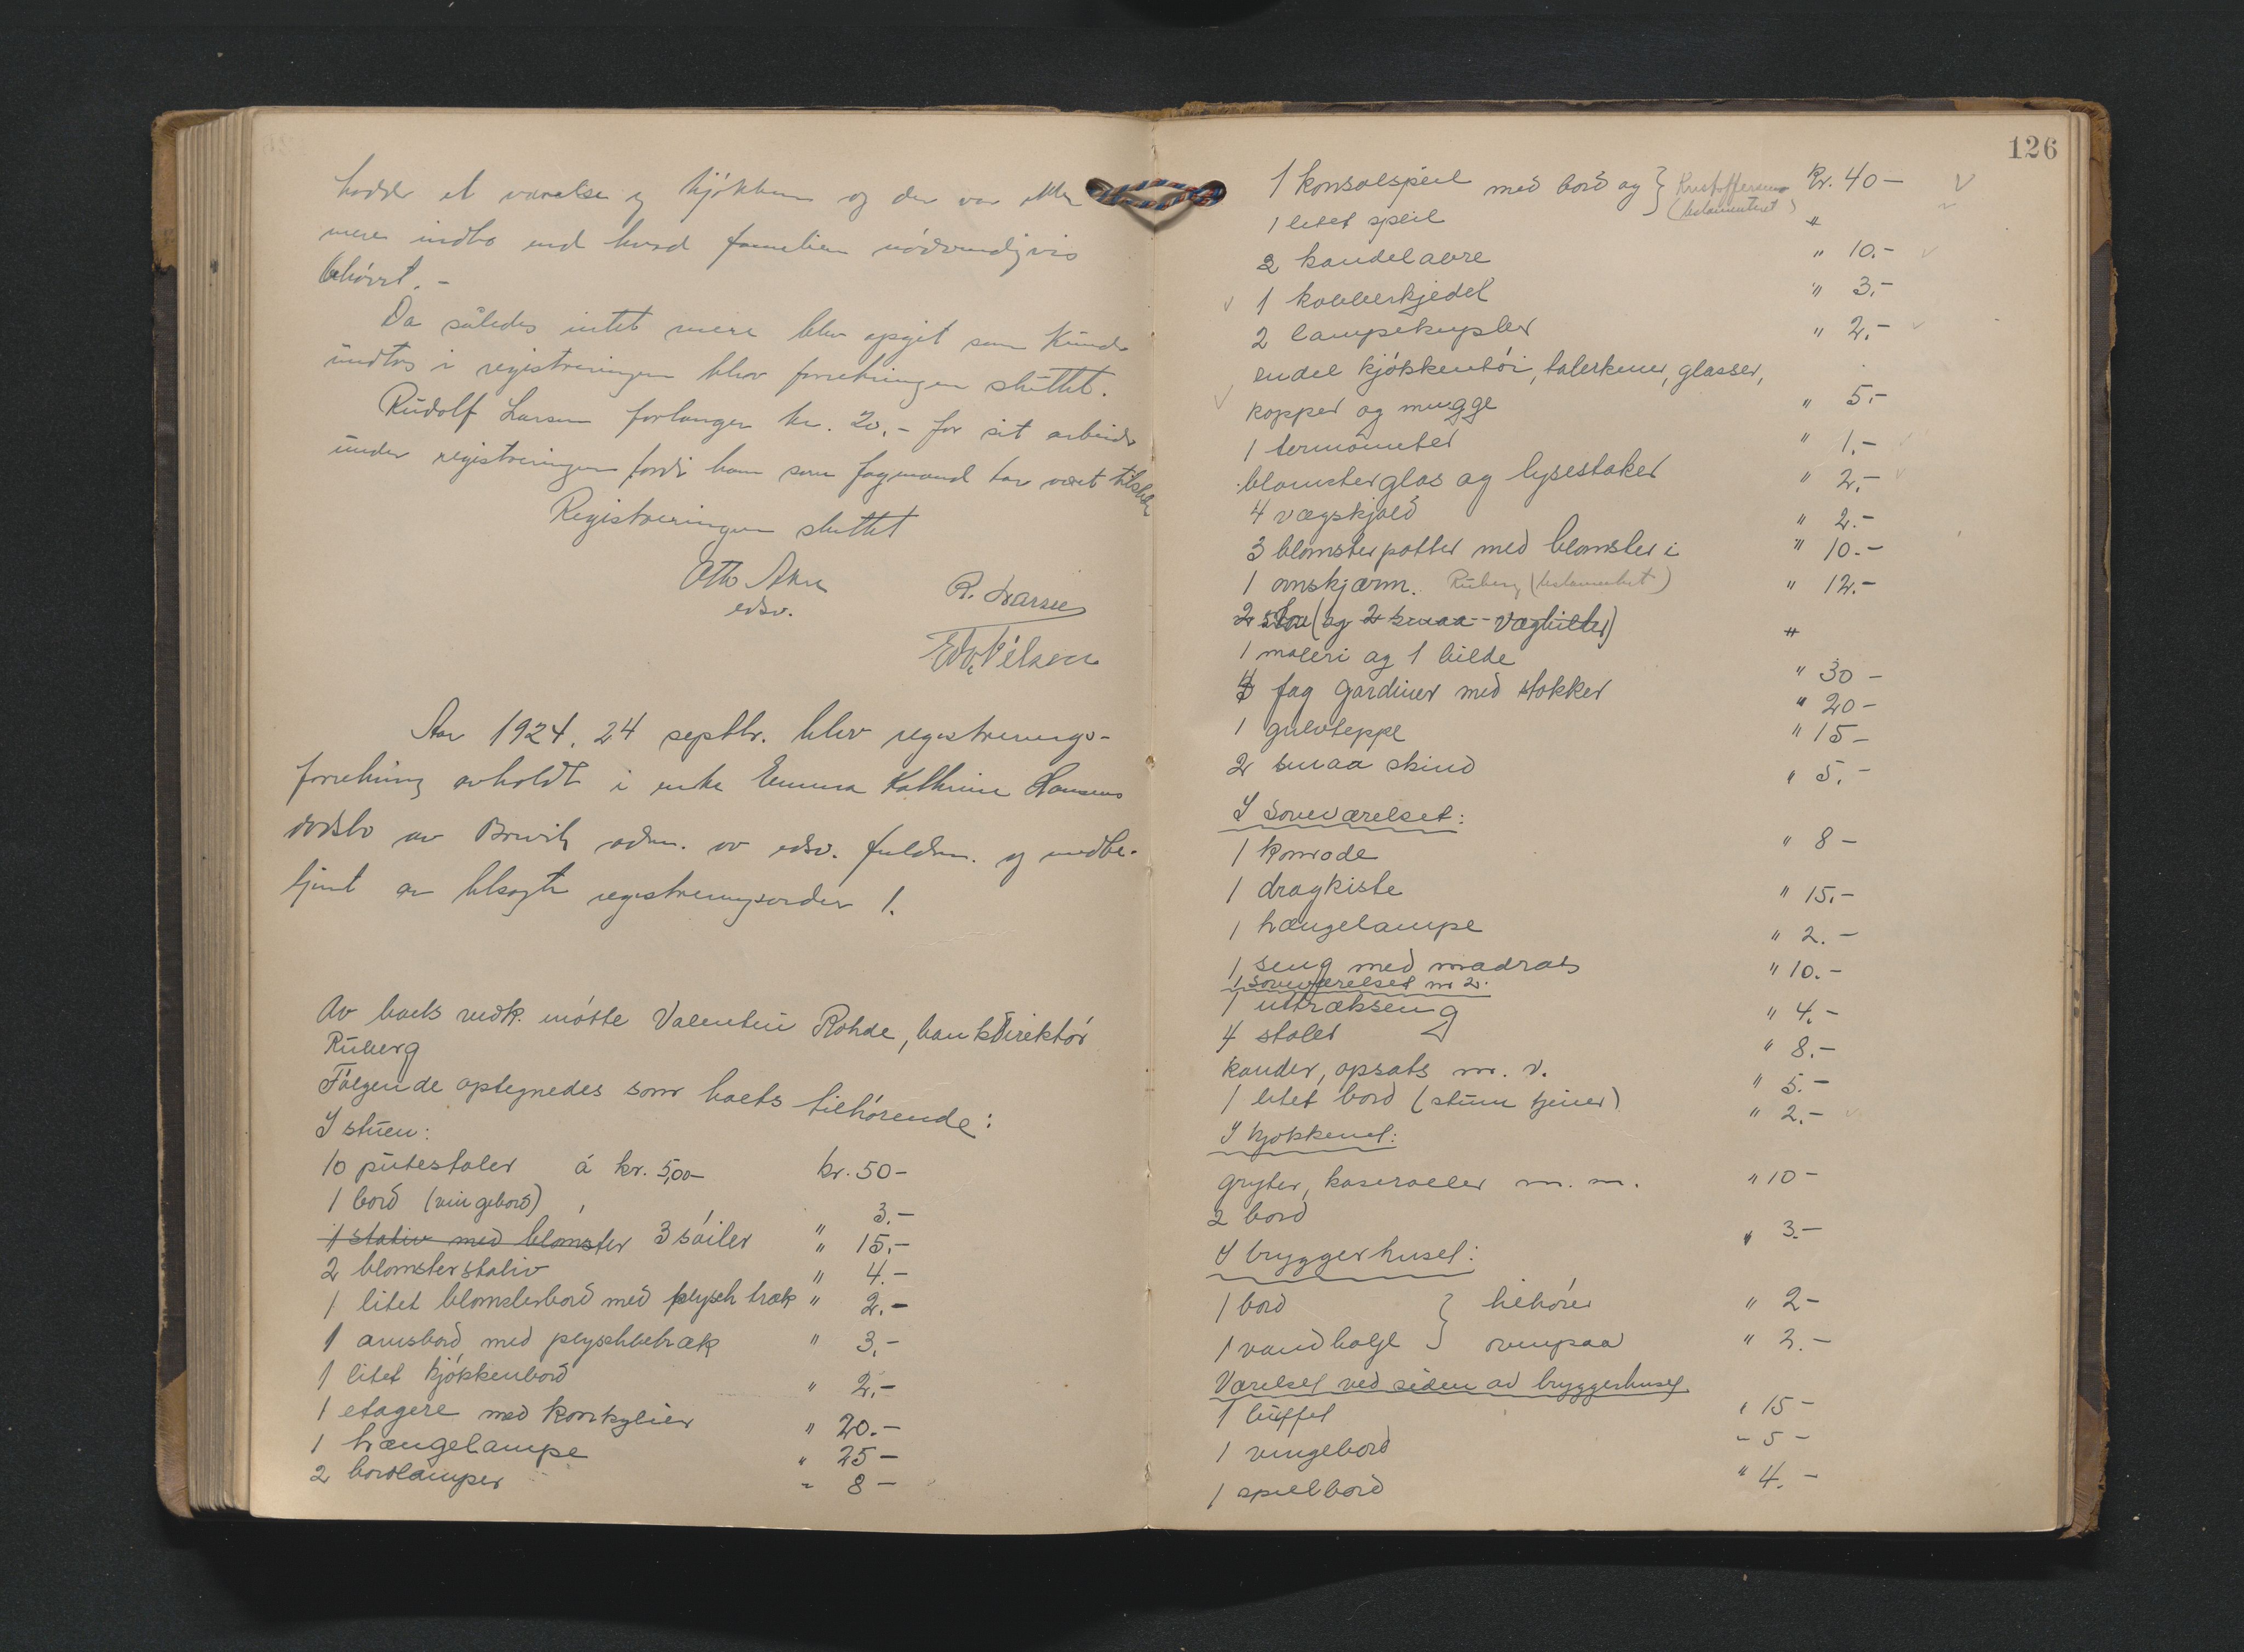 hadde et værelse og kjøkken og der var ikke
mere indbo end hvad familien nødvendigvis
behøvet. -
Da således intet mere blev opgit som kunde
indtas i registreringen blev forretningen sluttet.
Rudolf Larsen forlanger kr. 20,- for sit arbeide
under registreringen fordi han som fagmand har været tilstede
Registreringen sluttet
Otto Aker
edsv.
R. Larsen
Edv. Nilsen
Aar 1924, 24 septbr. blev registrerings-
forretning avholdt i enke Emma Kathrine Hansens
dødsbo av Brevik adm. av edsv. fuldm. og
av registreringsorder 1.
Av boets vedk. møtte Valentin Rohde, bankdirektør
Ruberg
Følgende optegnedes som boets tilhørende:
I stuen:
10 putestoler á kr. 5,00 kr. 50-
1 bord (vingebord) 3.-
1 stativ med blomster 3 søiler " 15.-
2 blomsterstativ " 4.-
1 litet blomsterbord med plysch træk " 2.-
1 avisbord med plyschbetræk " 3.-
1 litet kjøkkenbord " 2.-
1 etagere med konkylier " 20.-
1 hængelampe " 25-
2 bordlamper " 8-
126
1 konsolspeil med bord og } Kristoffersen kr. 40-
1 litet speil (testamenteret) "
2 kandelabre " 10.-
1 kobberkjedel " 3.-
2 lampekupler " 2.-
endel kjøkkentøi, talerkener, glasser,
kopper og mugge " 5.-
1 termometer " 1.-
blomsterglas og lysestaker " 2.-
4 vægskjold " 2.-
3 blomsterpotter med blomster i " 10.-
1 ovnskjærm. Ruberg (testamentet) " 12.-
2 (og 2 smaa vægbilder) "
1 maleri og 1 bilde " 30-
4 fag gardiner med stokker " 20-
1 gulvteppe " 15-
2 smaa skind " 5.-
I soveværelset:
1 komode " 8-
1 dragkiste " 15.-
1 hængelampe " 2.-
1 seng med madrats " 10.-
I soveværelset nr 2.
1 uttrækseng " 4.-
4 stoler " 8.-
kander, opsats m. v. " 5.-
1 litet bord (stum tjener) " 2.-
I kjøkkenet:
gryter, kaseroller m. m. " 10-
2 bord " 3.-
I bryggerhuset:
1 bord } tilhører " 2-
1 vandbalje } ovenpaa " 2.-
Værelset ved siden av bryggerhuset
1 buffet " 15-
1 vingebord " 5-
1 spilbord " 4.-